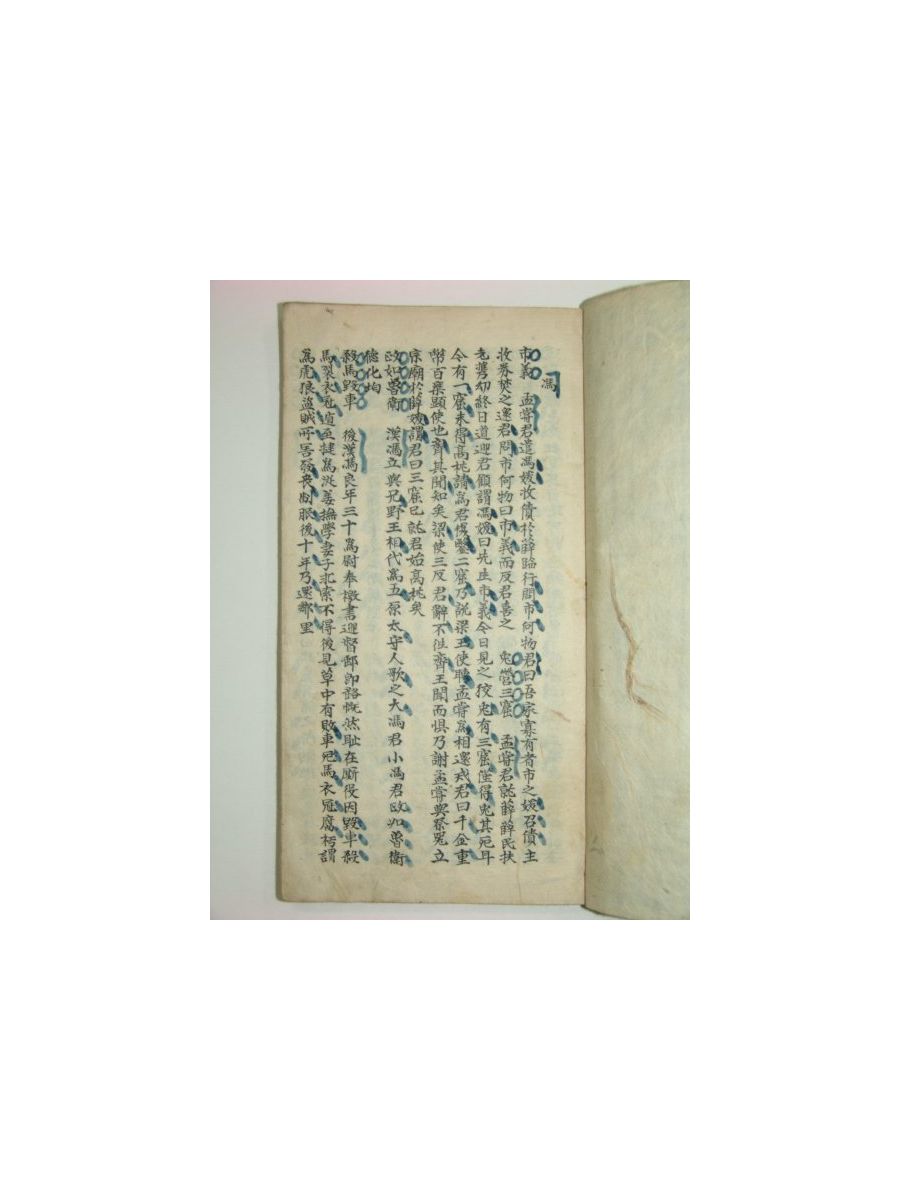 馮
市義 孟嘗君遣馮媛收債於薛臨行問市何物君曰吾家寡有者市之媛召債主
收券焚之還君問市何物曰市義而反君喜之 兔營三窟 孟嘗君就薛薛民扶
老携幼終日道迎君顧謂馮媛曰先生市義今日見之狡兔有三窟僅得兔其死耳
今有一窟未得高枕請爲君復鑿二窟乃說梁王使聘孟嘗爲相還戒君曰千金重
幣百乘顯使也齊其聞知矣梁使三反君辭不往齊王聞而惧乃謝孟嘗與祭器立
宗廟於薛媛謂君曰三窟已就君始高枕矣
政如魯衛 漢馮立與兄野王相代爲五原太守人歌之大馮君小馮君政如魯衛
德化均
殺馬毀車 後漢馮良年三十爲尉奉檄書迎督郵卽路慨然耻在厮役因毀車殺
馬裂衣冠遁至犍爲從姜撫學妻子求索不得後見草中有敗車死馬衣冠腐朽謂
爲虎狼盜賊所害發喪制服後十年乃還鄕里